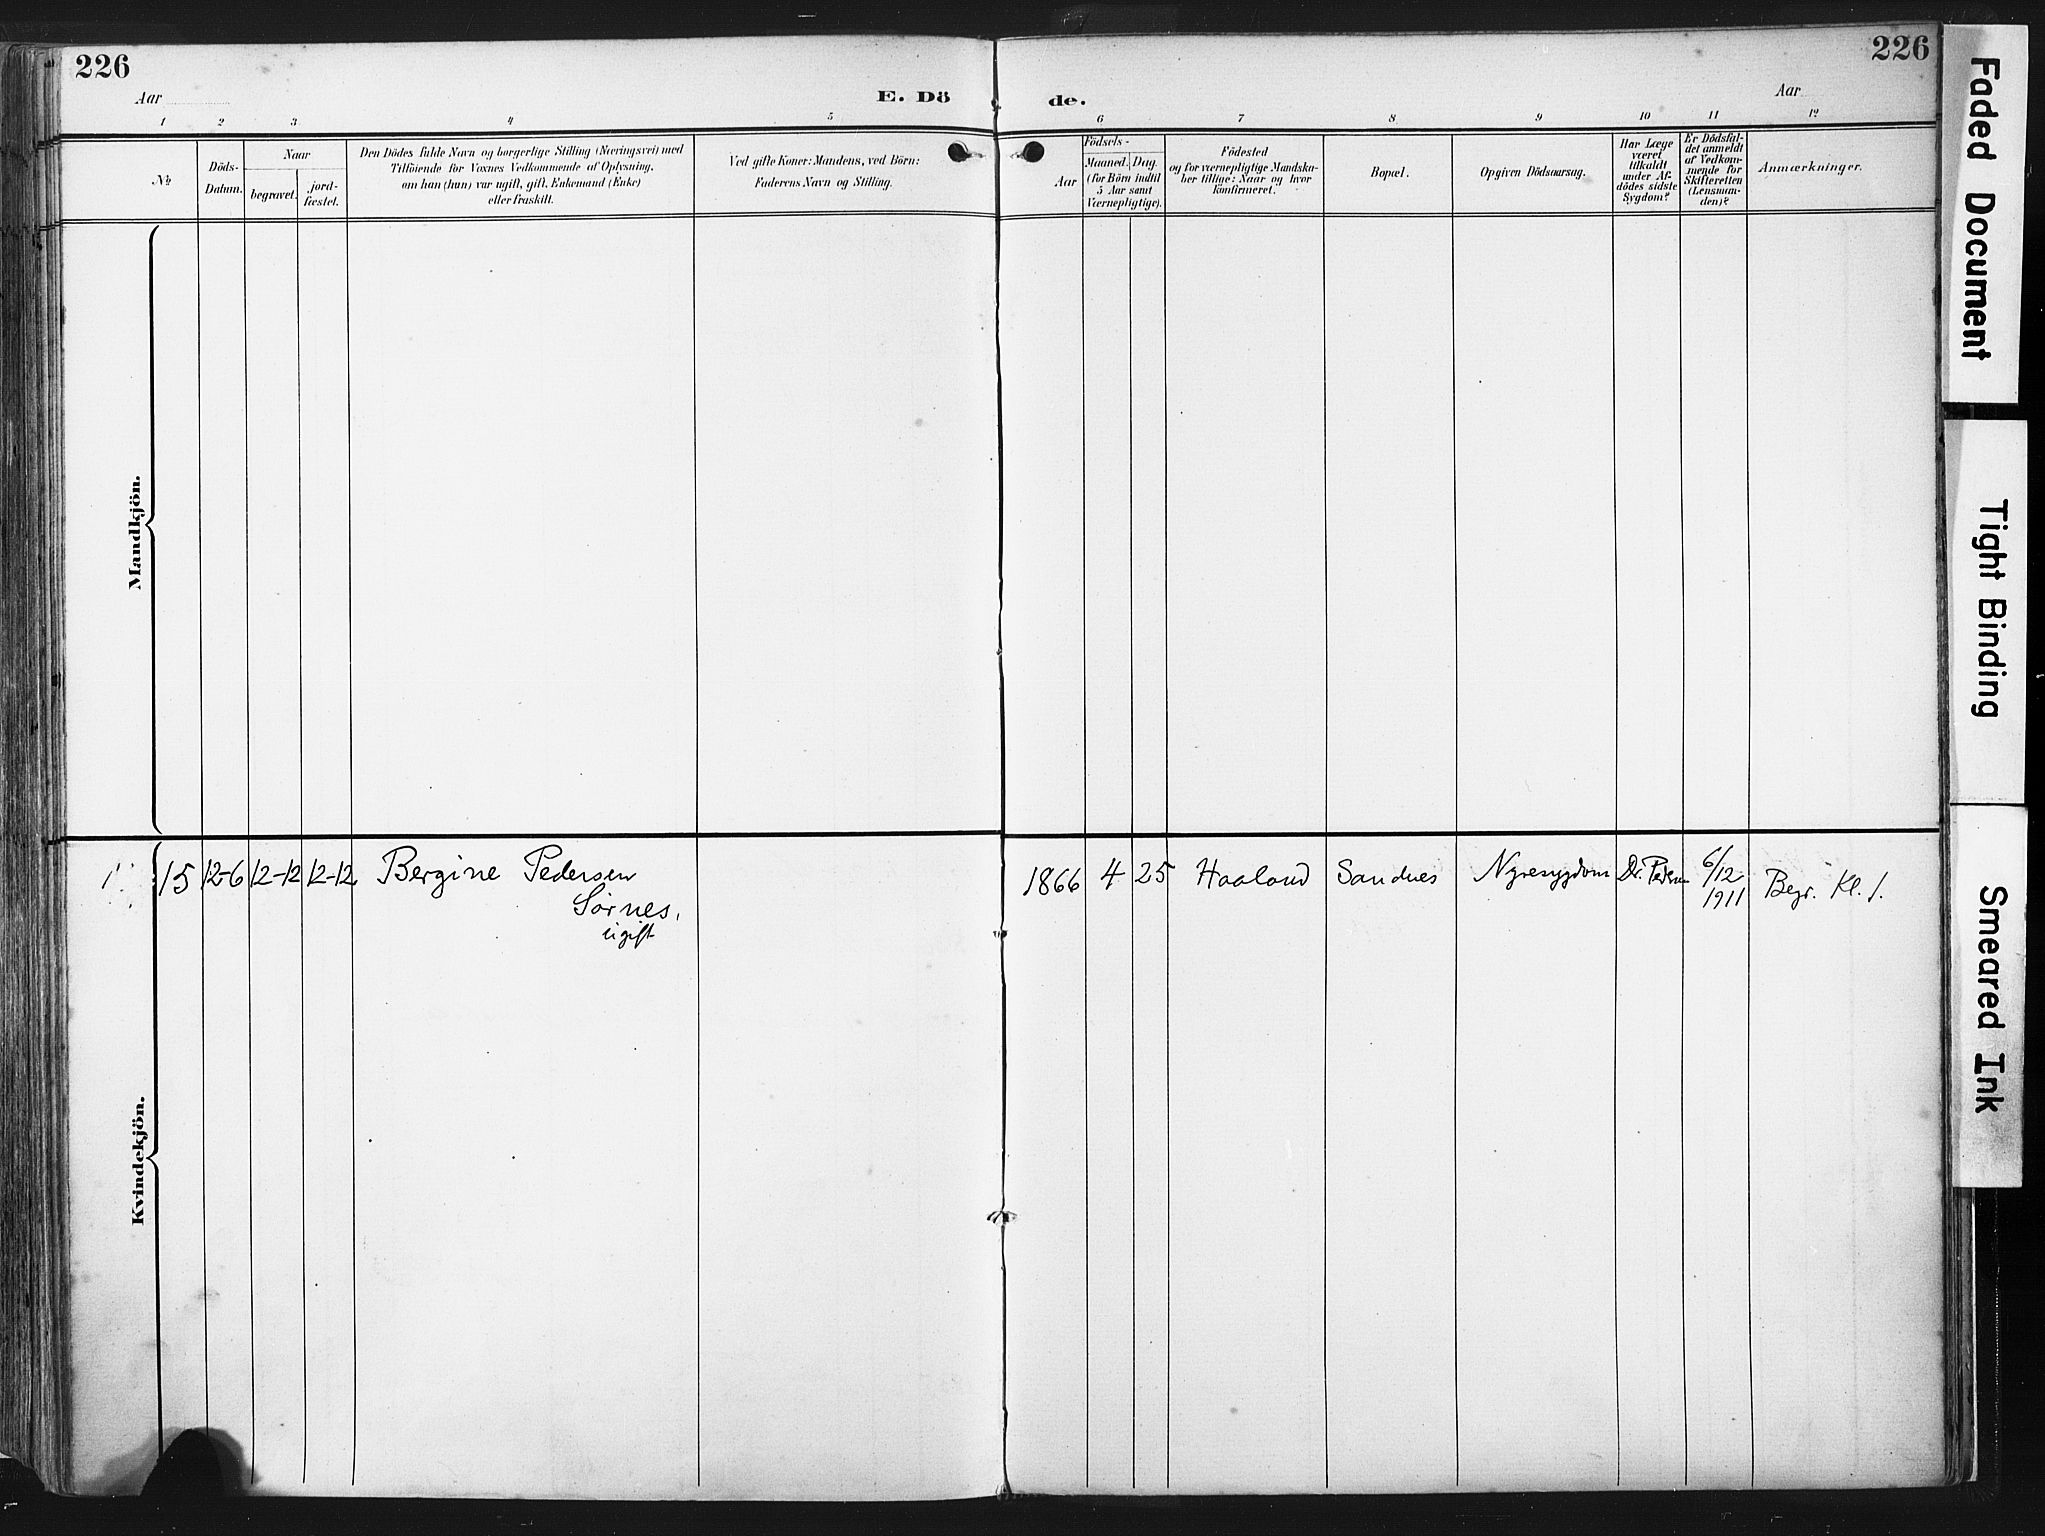 226
226
Aar
E. Dö
de.
Aar
1 2 3 4 5 6 7 8 9 10 11 12
No
Döds-
Datum.
Naar
begravet.
jord-
fæstet.
Den Dödes fulde Navn og borgerlige Stilling (Næringsvei) med
Tilföiende for Voxnes Vedkommende af Oplysning,
om han (hun) var ugift, gift, Enkemand (Enke)
eller fraskilt.
Ved gifte Koner: Mandens, ved Börn:
Faderens Navn og Stilling.
Födsels-
Aar
Maaned. Dag.
(for Börn indtil
5 Aar samt
Værnepligtige).
Födested
og for værnepligtige Mandska-
ber tillige: Naar og hvor
konfirmeret.
Bopæl.
Opgiven Dödsaarsag.
Har Læge
været
tilkaldt
under Af-
dödes sidste
Sygdom?
Er Dödsfal-
det anmeldt
af Vedkom-
mende for
Skifteretten
(Lensman-
den)?
Anmærkninger.
Mandkjön.
Kvindekjön.
15 12-6 12-12 12-12 Bergine Pedersen 1866 4 25 Haaland Sandnes Nyresygdom Dr. Pedersen 6/12
Sørnes, 1911 Begr. Kl. 1.
ugift
Faded Document
Tight Binding
Smeared Ink